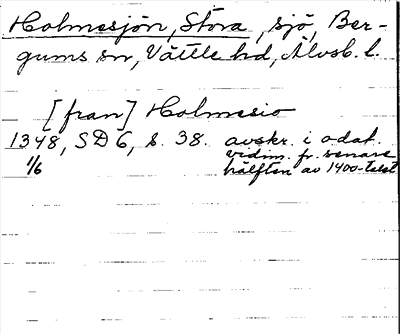 Holmesjön, Stora, sjö, Ber-
gums sn, Vättle hd, Älvsb. l.
[fran] Holmesio
1348, SD 6, s. 38. avskr. i odat.
1/6 vidim. fr. senare
hälften av 1400-talet